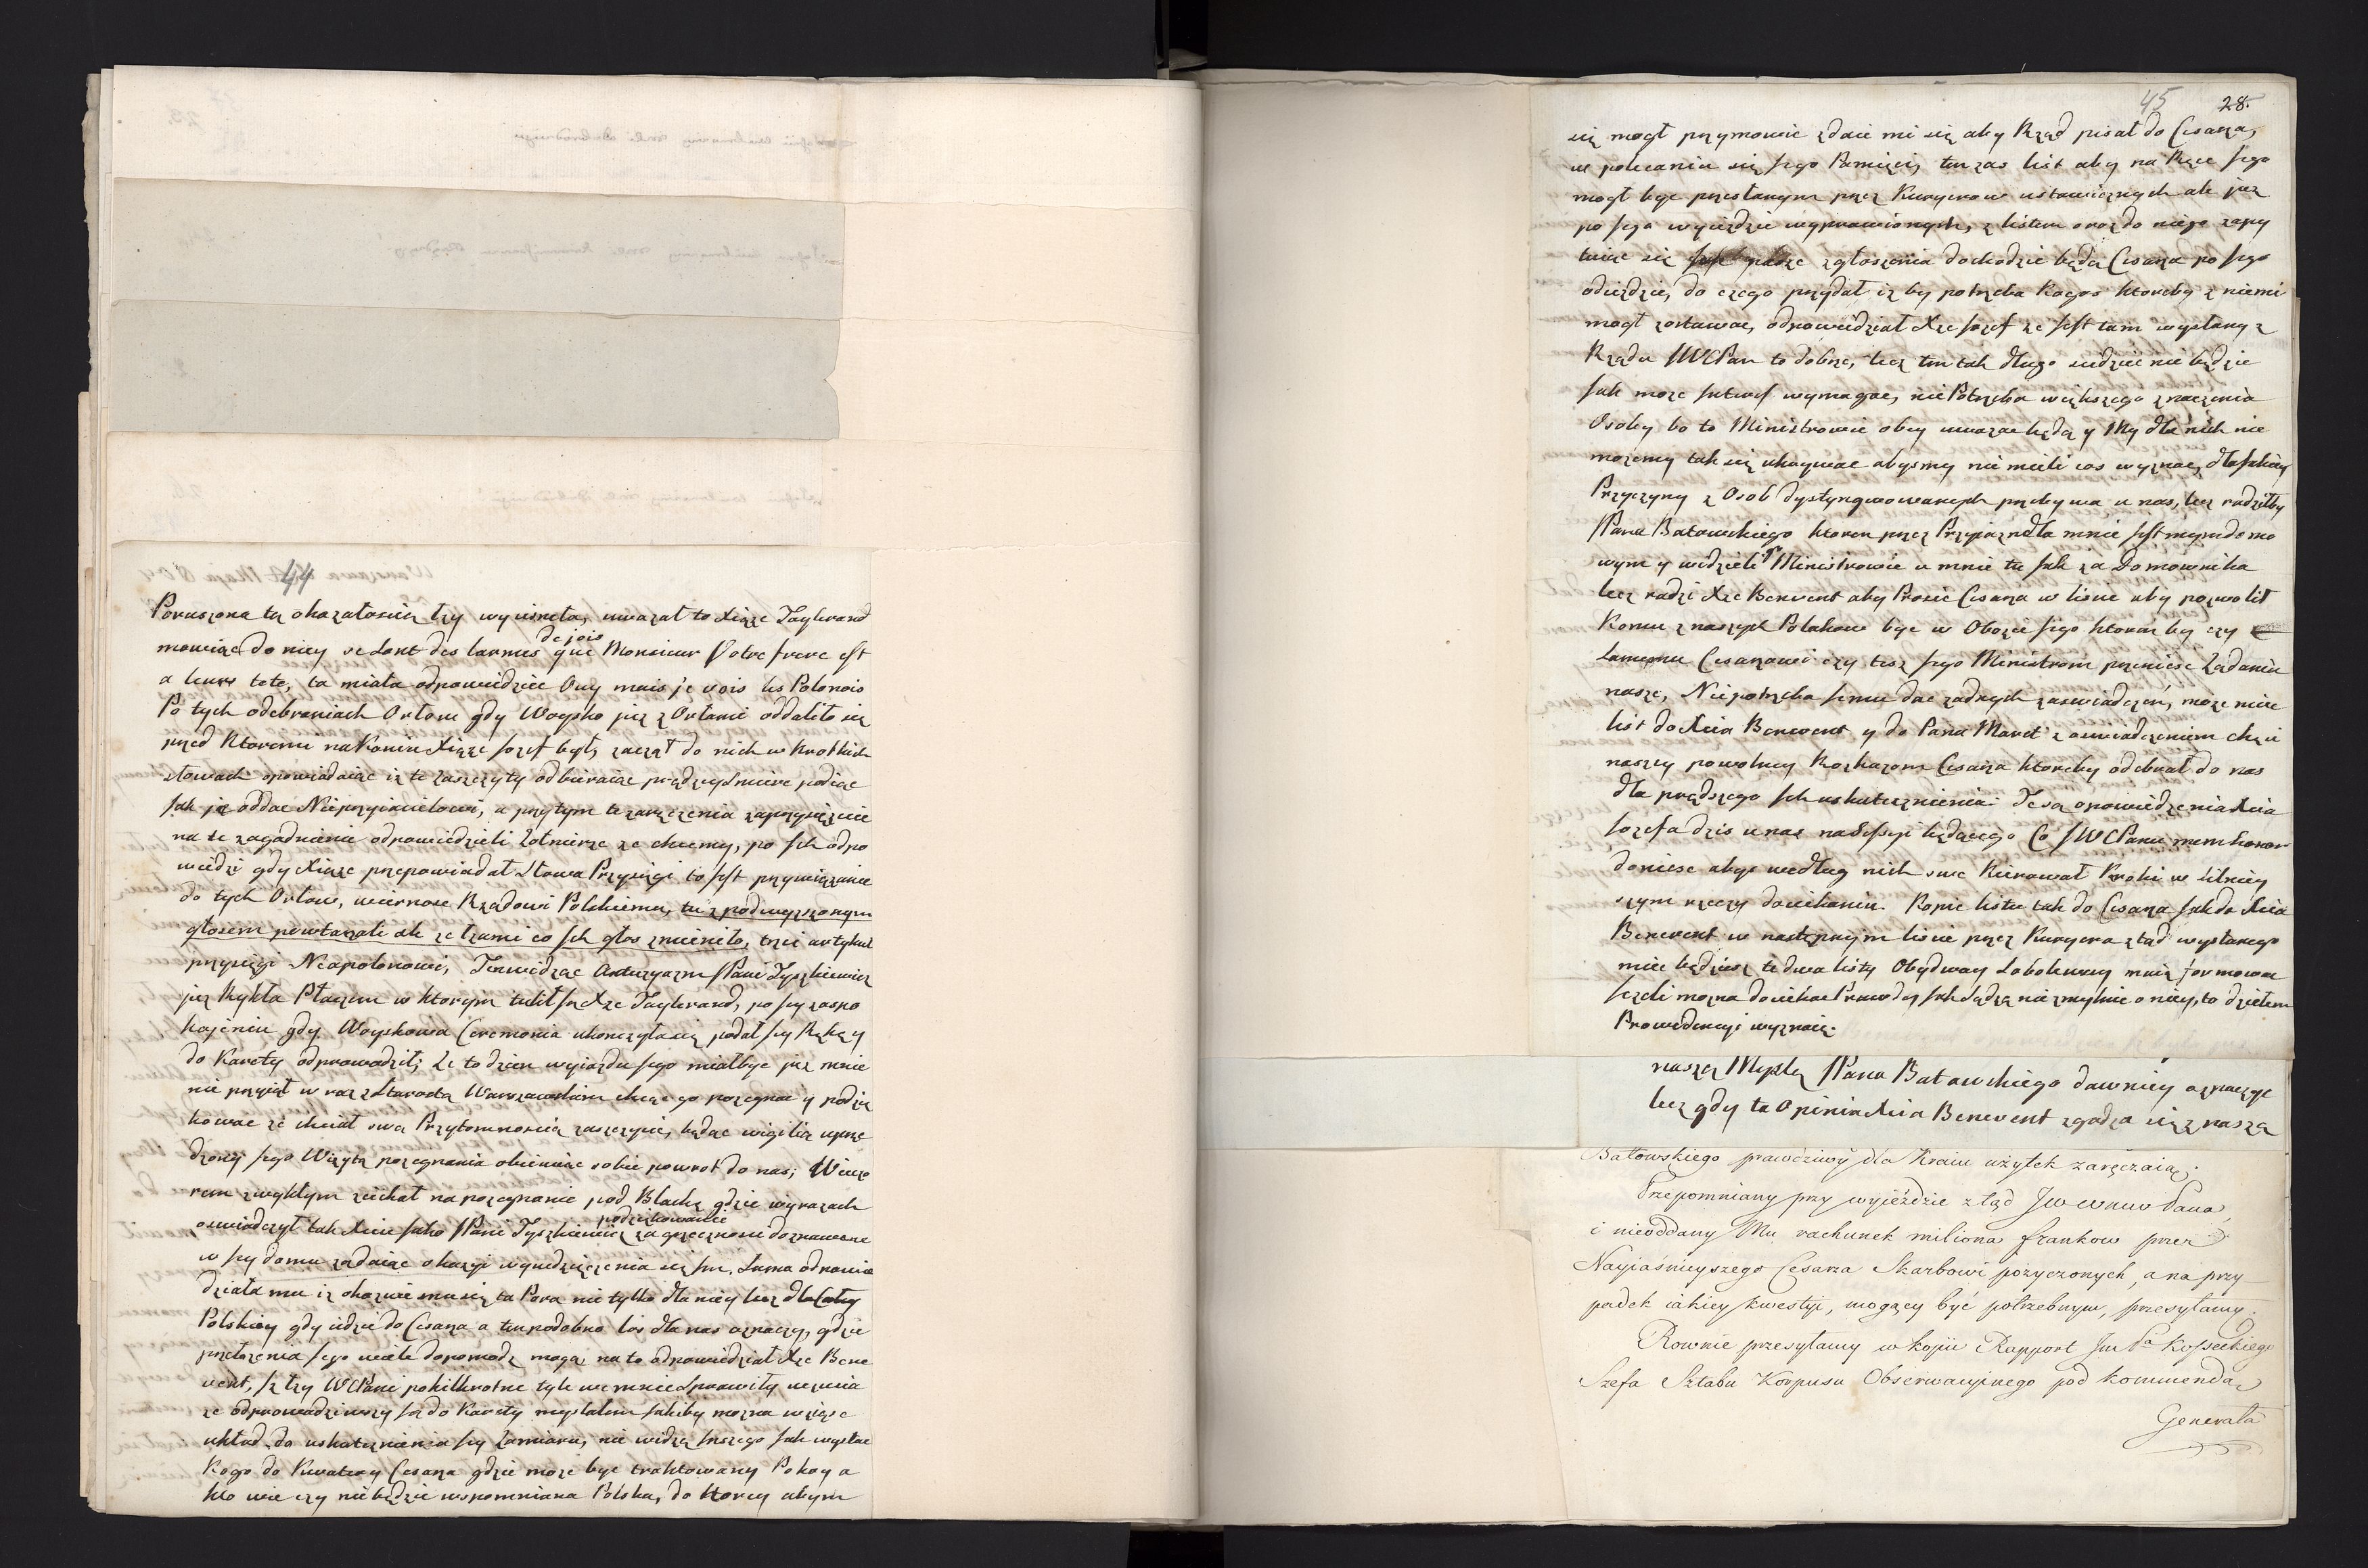 44
Poruszona tą okazałoscią łzy wycisneła, uwazał to Xiąże Taylerand
de joie
mowiąc do niey se sont des larmes que Monsieur Votre frere est
a leurs tete, ta miała odpowiedziec Ouy mais je vois les Polonois
Po tych odebraniach Orłow gdy Woysko juz z Orłami oddaliło się
przed ktoremi na Koniu Xiąze Jozef był, zaczął do nich w krotkich
słowach opowiadaiąc iz te zaszczyty odbieraiąc prędzey smierc podiąc
jak je oddac Nieprzyiacielowi, a przytym te zaręczenia zaprzysięzcie
na te zagadnienie odpowiedzieli Zołnierze ze chcemy, po ich odpo
wiedzi gdy Xiąze przepowiadał słowa Przysięgi to jest przywiązanie
do tych Orłow, wiernosc Rządowi Polskiemu, tu z podwyzszonym
głosem powtarzali ale ze łzami co ich głos zmieniło, trzci artykuł
przysięgi Neapolonowi, Ten widząc Antuzyazm JPani Tyszkiewicz
juz Rykła Płaczem w ktorym tulił ją Xze Taylerand, po jey zaspo
kojeniu gdy Woyskowa Ceremonia ukonczyła się, podał jey Rękę y
do Karety odprowadził; Ze to dzien wyiazdu jego miał byc juz mnie
nie przyiął w raz z Starostą Warszawskim chcąc go pozegnac y podzię
kowac ze chciał swą Przytomnoscią zaszczycic, będąc wigilią uprze
dzony jego Wizytą pozegnania obieniaąc sobie powrot do nas; Wieczo
rem zwykłym ziechał na pozegnanie pod Blachę gdzie wyrazach
podziękowanie
oswiadczył tak Xciu jako JPani Tyszkiewicz za grzecznosci doznawane
w jey domu ządaiąc okazyi wywdzięczenia się jm, Sama odpowie
działa mu iz okazuie mu się ta Pora nie tylko dla niey lecz dla Całey
Polskiey gdy idzie do Cesarza a ten podobno los dla nas oznaczy, gdzie
przełozenia jego wiele dopomodz mogą, na to odpowiedział Xze Bene
vent, jz łzy WCPani pokilkrotne tyle we mnie sprawiły uczucia
ze odprowadziwszy ją do Karety myslałem jakiby mozna wziąsc
układ do uskutecznienia jey zamiaru, nie widzę jnszego jak wysłac
Kogo do Kwatery Cesarza gdzie moze byc traktowany Pokoy a
kto wie czy nie będzie wspomniana Polska, do ktorey abym
45 28.
się mogł przymowic zdaie mi się aby Rząd pisał do Cesarza,
w polecaniu się jego Pamięci, ten zas list aby na Ręce jego
mogł byc przesłanym przez Kuryerow ustawicznych ale juz
po jego wyiezdzie wyprawionych, z listem oraz do niego zapy
tuiąc się jak zgłoszenia dochodzic będą Cesarza po jego
odiezdzie, do czego przydał iz by potrzeba kogos ktoreby z niemi
mogł zostawac, odpowiedział Xze Jozef ze jest tam wysłany z
Rządu JWCPan to dobrze, lecz ten tak długo siedziec nie będzie
jak moze jnteres wymagac, nie Potrzeba większego znaczenia
Osoby bo to Ministrowie obcy uwazac będą y My dla nich nie
mozemy tak się ukazywac abysmy nie mieli cos wyznac, dla jakiey
Przyczyny z Osob dystyngwowanych przebywa u nas, lecz radziłby
JPana Batowskiego ktoren przez Przyiazn dla mnie jest mym domo
wym y widzieli go Ministrowie u mnie tu jak za Domownika
lecz radzi Xze Benvent aby Prosic Cesarza w liscie aby pozwolił
Komu z naszych Polakow byc w Obozie jego ktoren by czy
Samemu Cesarzowi czy tesz jego Ministrom przeniosc Ządania
nasze, Nie potrzeba jemu dac zadnych zaswiadczeń, moze miec
list do Xcia Benevent y do Pana Maret z oswiadczeniem chęci
naszey powolney Rozkazom Cesarza ktoreby odebrał do nas
dla prędszego jch uskutecznienia. Te są opowiedzenia Xcia
Jozefa dzis u nas na Sessyi będącego Co JWCPanu mem honor
doniesc abys według nich swe Kierował Kroki w silniey
szym rzeczy dociekaniu. Kopie listu tak do Cesarza jak do Xcia
Benevent w następnym liscie przez Kuryera ztąd wysłanego
miec będziesz te dwa listy Obydway Sobolewscy maią formowac
jezeli mozna dociekac Prawdy jak sądzą nie zmylnie o niey, to dziełem
Prowidencyi wyznaię.
naszą Myslą JPana Batowskiego dawniey oznaczyc
lecz gdy ta Opinia Xcia Benevent zgadza się z naszą
Batowskiego prawdziwy dla Kraiu użytek zaręczaią.
Przepomniany przy wyieździe ztąd JWWMW Pana,
i nieoddany Mu rachunek miliona frankow przez
Nayiaśnieyszego Cesarza Skarbowi pożyczonych, a na przy-
padek iakiey kwestyi, mogący być potrzebnym, przesyłamy.
Rownie przesyłamy w kopii Rapport Jm Pa Kosseckiego
Szefa Sztabu Korpusu Obserwacyinego pod kommendą
Generała